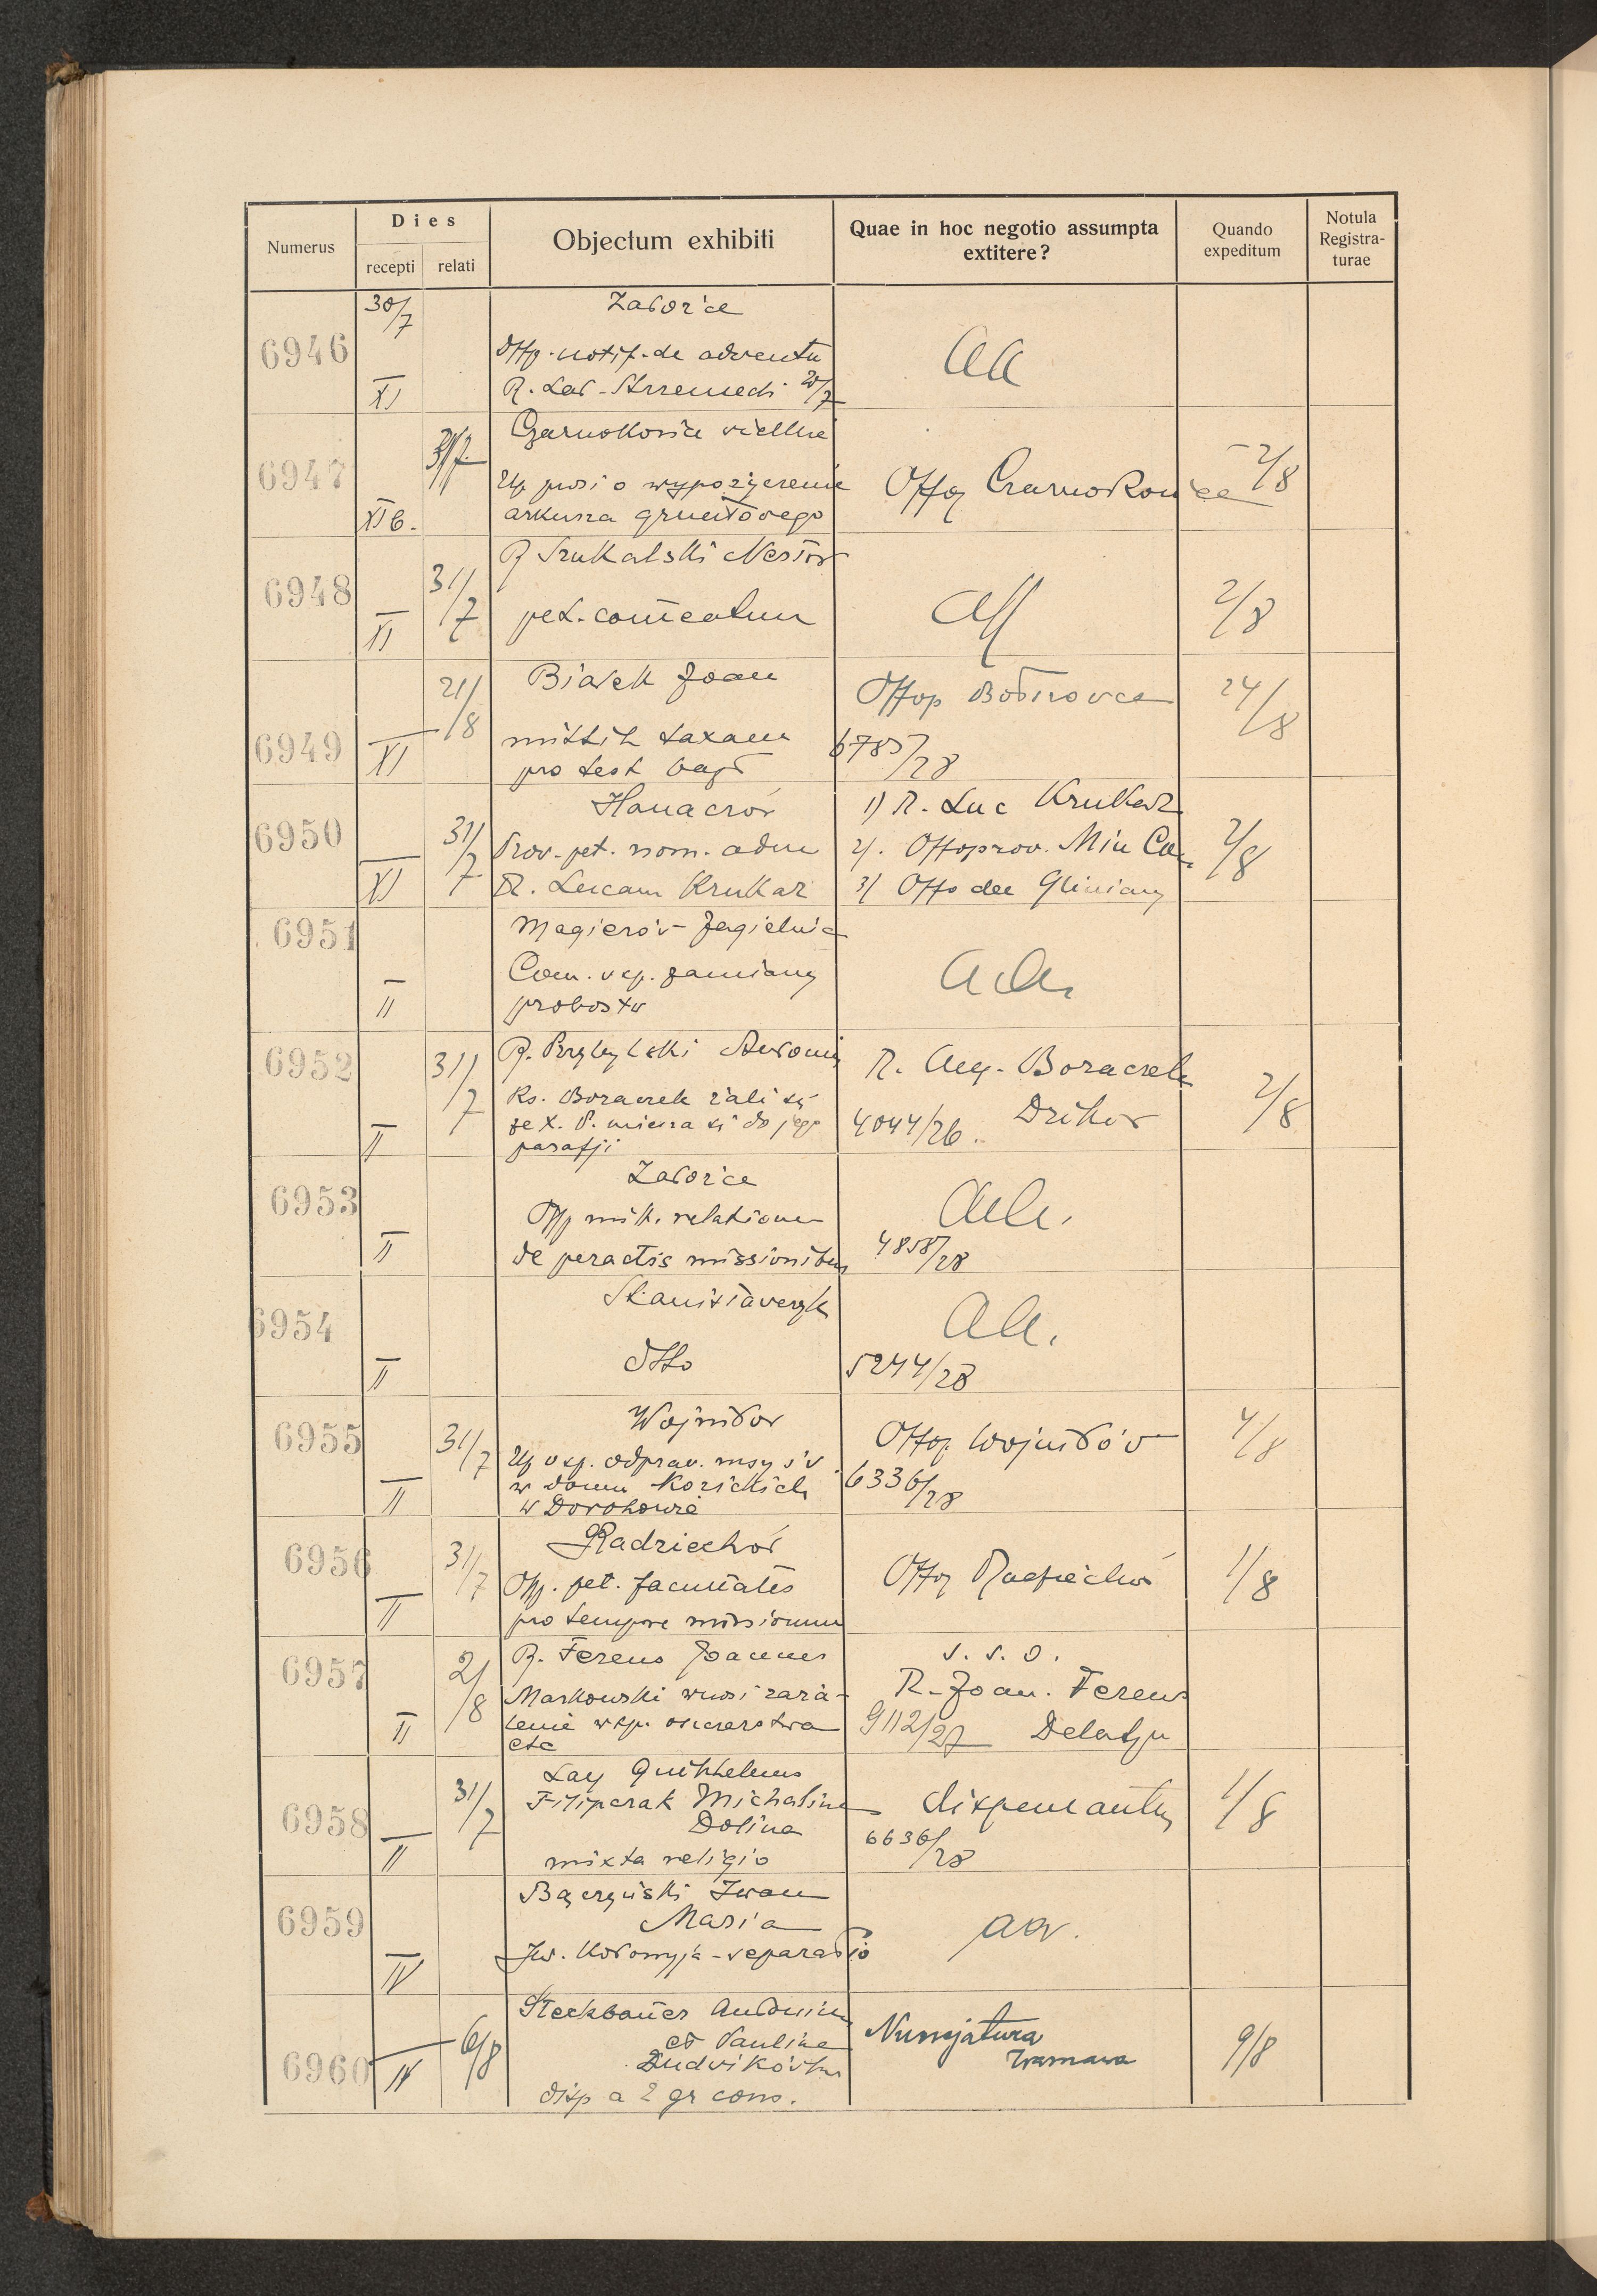 Numerus
Dies
recepti
relati
Objectum exhibiti
Quae in hoc negotio assumpta
extitere?
Quando
expeditum
Notula
Registra-
turae
6946
30/7
XI
Załoźce
Offp. notif. de adventu
R. Lad. 
Aa
6947
31/7
XI b.
Czarnokońce wielkie
Up prosi o wypożyczenie
arkusza gruntowego
Offp Czarnokońce
2/8
6948
II
31/7
R Szukalski Nestor
pet. comeatum
2/8
6949
XI
21/8
Białek Joan
mittit taxam
pro test
Offop
6785/28
24/8
6950
XI
31/7
Hanaczów
Prov. pet. nom. adm
R. Lucam Krukar
1) R. Luc Krukar
2). Offoprov. Min
3) Offo dec Gliniany
2/8
6951
II
Magierów - Jagielnica
Com. wsp. zamiany
probostw
Aa
6952
II
31/7
R. Przybylski Antoni
Ks. Boraczek żali się
że X. P. miesza się do jego
parafji
R. Aug. Boraczek
4044/26. Dźików
2/8
6953
II
Załoźce
Offp mitt. relationem
de peractis missionibus
Aa.
4858/28
6954
II
Stanisławczyk
Offo
Aa.
5244/28
6955
II
31/7
Wojniłów
Up wsp. odpraw. mszy św
w domu Kozickich
w Dorohowie
Offop. Wojniłów
6336/28
4/8
6956
II
31/7
Radziechów
Offp. pet. facultates
pro tempore missionum
Offop Radziechów
1/8
6957
II
2/8
R. Ferens Joannes
Markowski wnosi zaża-
lenie wsp. oszczerstwa
etc
S. S. O.
R. Joan. Ferens
9112/27 Delatyn
6958
II
31/7
Lay Guilhelmus
Filipczak Michalina
Dolina
mixta religio
dispensantur
6636/28
1/8
6959
IV
Bączyński Iwan
Maria
Kołomyja - separatio
aa.
6960
IV
6/8
Steckbauer Antonius
et Paulina
Ludwikówka
disp a 2 gr cons.
Nuncjatura
Warszawa
9/8